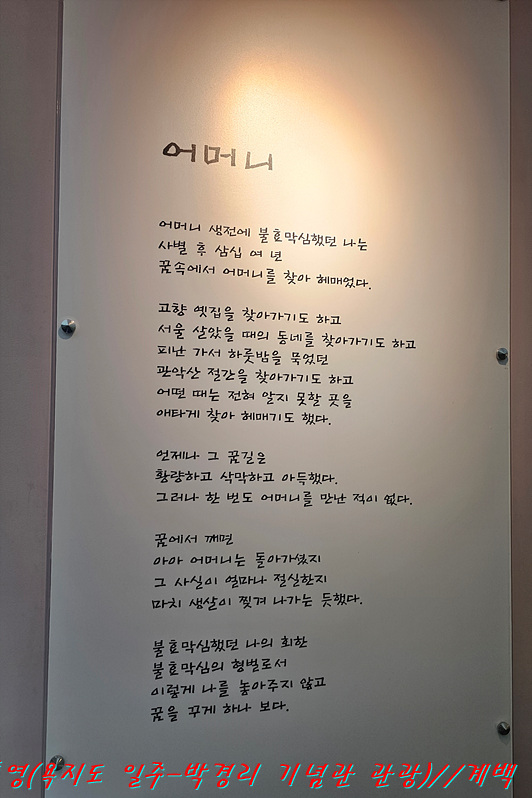 어머니
어머니 생전에 불효막심했던 나는
사별 후 삼십 여 년
꿈속에서 어머니를 찾아 헤매었다.
고향 옛집을 찾아가기도 하고
서울 살았을 때의 동네를 찾아가기도 하고
피난 가서 하룻밤을 묵었던
관악산 절간을 찾아가기도 하고
어떤 때는 전혀 알지 못할 곳을
애타게 찾아 헤매기도 했다.
언제나 그 꿈길은
황량하고 삭막하고 아득했다.
그러나 한 번도 어머니를 만난 적이 없다.
꿈에서 깨면
아아 어머니는 돌아가셨지
그 사실이 얼마나 절실한지
마치 생살이 찢겨 나가는 듯했다.
불효막심했던 나의 회한
불효막심의 형벌로서
이렇게 나를 놓아주지 않고
꿈을 꾸게 하나 보다.
영(욕지도 일주-박경리 기념관 관광)//계백